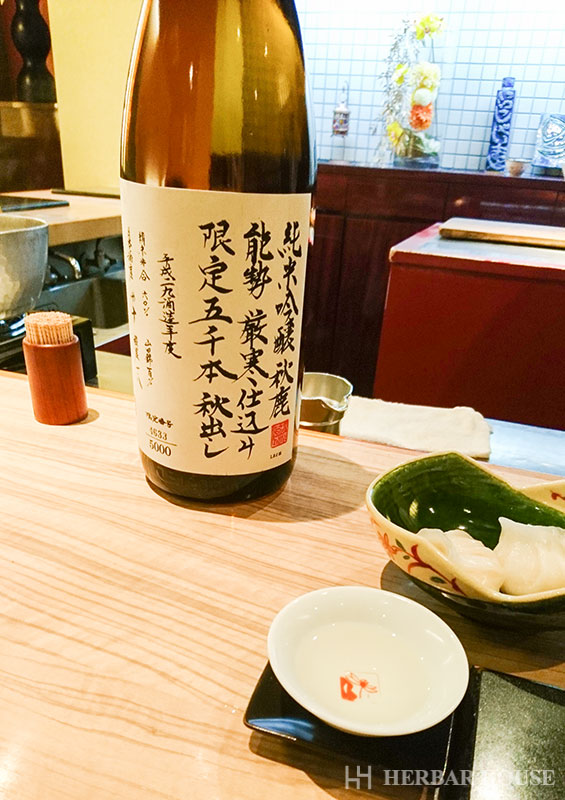 純米吟醸 秋鹿
能勢 厳寒仕込み
限定五千本 秋出し
平成二九酒造年度
精米歩合 六〇%
山田錦
限定番号
4633
5000
HERBAR HOUSE